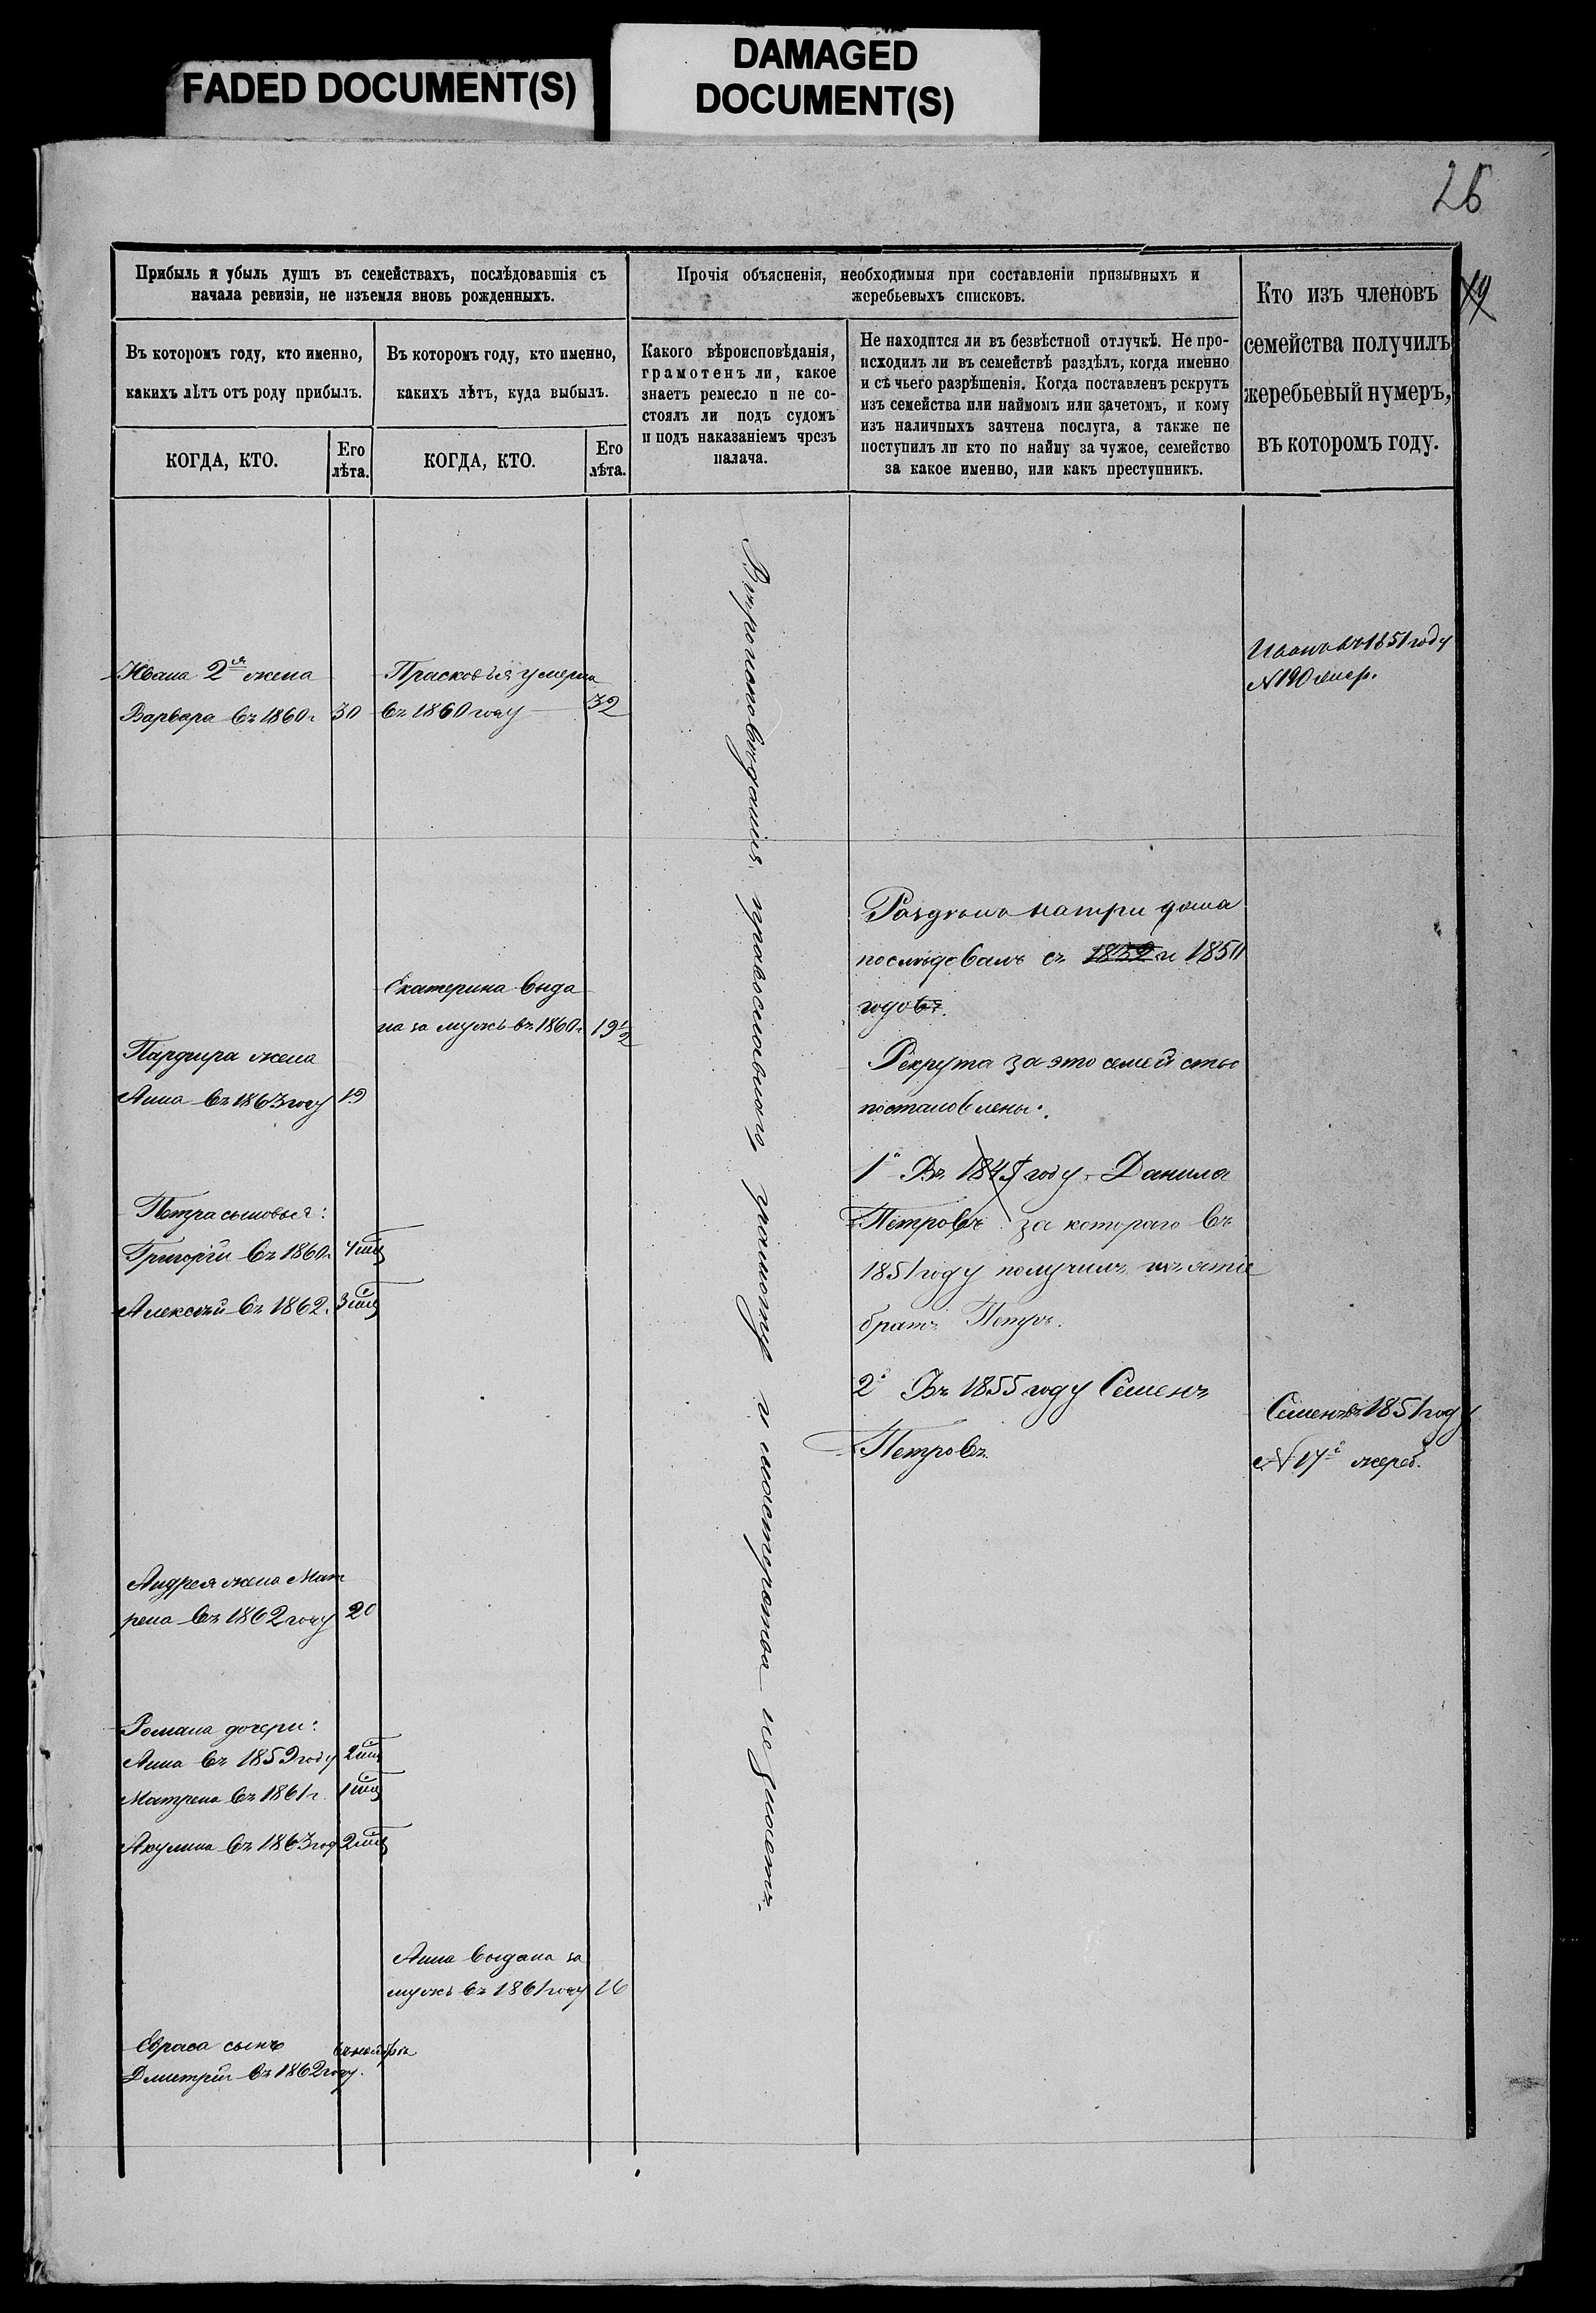 FADED DOCUMENT(S)
DAMAGED
DOCUMENT(S)
26
19
Прибыль и убыль душъ въ семействахъ, послѣдовавшія съ
начала ревизіи, не изъемля вновь рожденныхъ.
Въ которомъ году, кто именно,
какихъ лѣтъ отъ роду прибылъ.
КОГДА, КТО.
Его
лѣта.
Въ которомъ году, кто именно,
какихъ лѣтъ, куда выбылъ.
КОГДА, КТО.
Его
лѣта.
Прочія объясненія, необходимыя при составленіи призывныхъ и
жеребьевыхъ списковъ.
Какого вѣроисповѣданія,
грамотенъ ли, какое
знаетъ ремесло и не со-
стоялъ ли подъ судомъ
и подъ наказаніемъ чрезъ
палача.
Не находится ли въ безвѣстной отлучкѣ. Не про-
исходилъ ли въ семействѣ раздѣлъ, когда именно
и съ чьего разрѣшенія. Когда поставленъ рекрутъ
изъ семейства или наймомъ или зачетомъ, и кому
изъ наличныхъ зачтена послуга, а также не
поступилъ ли кто по найму за чужое, семейство
за какое именно, или какъ преступникъ.
Кто изъ членовъ
семейства получилъ
жеребьевый нумеръ,
въ которомъ году.
Ивана 2я жена
Варвара въ 1860г 30
Прасковья умерла
въ 1860 году 32
Иванъ въ 1851 году
N 190
Екатерина выда
на за мужъ въ 1860г 19 1/2
Парфира жена
Анна въ 1863 году 19
Петра сыновья:
Григорій въ 1860г
Алексѣй въ 1862.
Андрея жена Мат
рена въ 1862 году 20
Романа дочери:
Анна въ 1859 году
Матрена въ 1861 г.
Акулина въ 1863 год
Анна выдана за
мужъ въ 1861 году 16
сынъ
Дмитрій въ 1862 году.
Вѣроисповѣданія православнаго, грамотѣ и мастерства не знаетъ.
на три дома
послѣдовалъ съ 1852 и 1850
годовъ.
Рекрута за это семейство
постановлены:
1й Въ 1845 году Данила
Петровъ за котораго въ
1851 году получилъ изъятіе
братъ Петръ.
2й Въ 1855 году Семенъ
Петровъ.
Семенъ въ 1851 году
N 17й жереб.